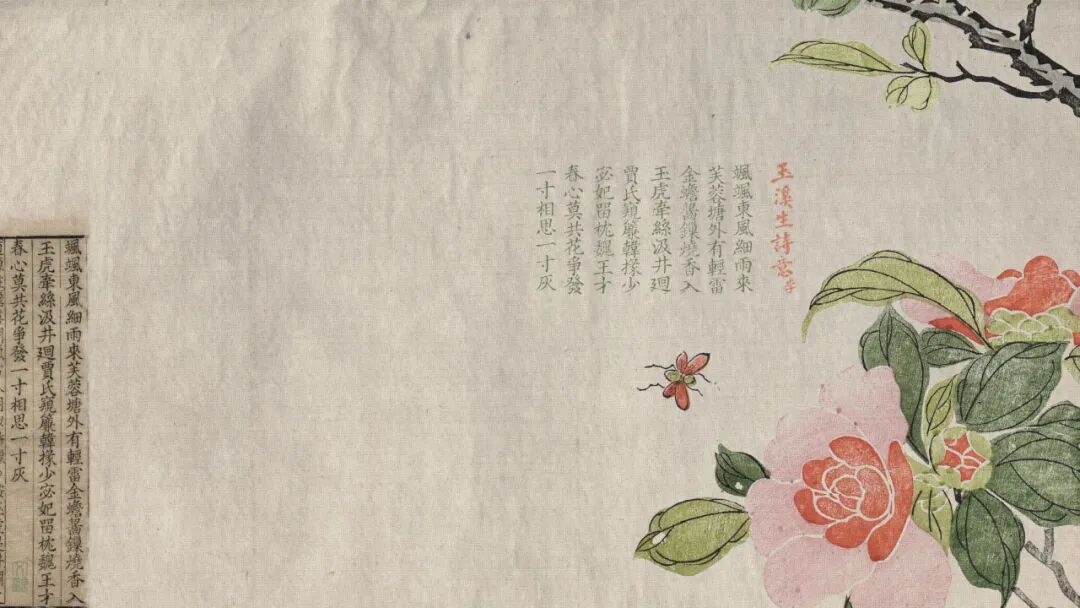 玉溪生詩意
颯颯東風細雨來
芙蓉塘外有輕雷
金蟾齧鏁燒香入
玉虎牽絲汲井廻
賈氏窺簾韓掾少
宓妃留枕魏王才
春心莫共花爭發
一寸相思一寸灰
颯颯東風細雨來芙蓉塘外有輕雷金蟾齧鏁燒香入
玉虎牽絲汲井廻賈氏窺簾韓掾少宓妃留枕魏王才
春心莫共花爭發一寸相思一寸灰